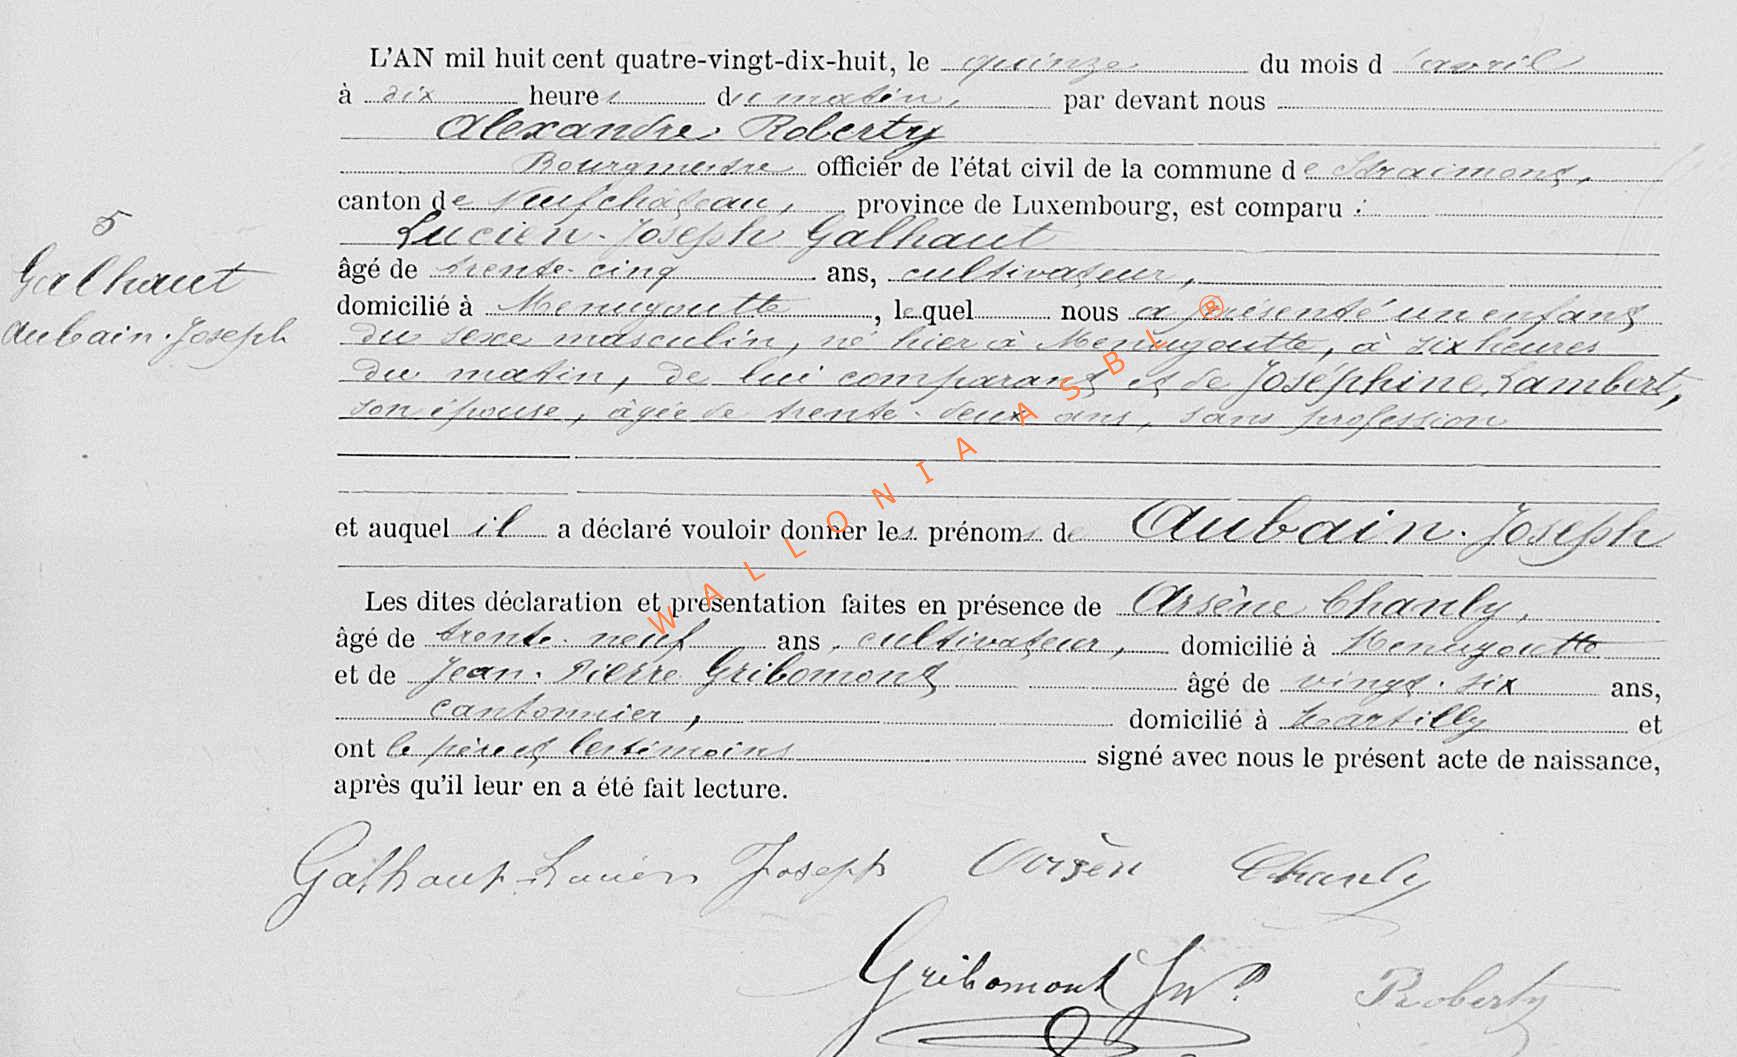 L'AN mil huit cent quatre-vingt-dix-huit, le quinze du mois d'avril
à dix heures du matin, par devant nous
Alexandre Roberty
Bourgmestre officier de l'état civil de la commune de Straimont,
canton de Neufchâteau, province de Luxembourg, est comparu :
Lucien-Joseph Galhaut
âgé de trente-cinq ans, cultivateur,
domicilié à Menugoutte, lequel nous a présenté un enfant
du sexe masculin, né hier à Menugoutte, à six heures
du matin, de lui comparant et de Joséphine Lambert,
son épouse, âgée de trente-deux ans, sans profession
et auquel il a déclaré vouloir donner les prénoms de Aubain-Joseph
Les dites déclaration et présentation faites en présence de Arsène Chanly,
âgé de trente-neuf ans, cultivateur, domicilié à Menugoutte
et de Jean-Pierre Gribomont âgé de vingt-six ans,
cantonnier, domicilié à Martilly et
ont le père et les témoins signé avec nous le présent acte de naissance,
après qu'il leur en a été fait lecture.
5
Galhaut
Aubain-Joseph
Galhaut Lucien Joseph Arsèn Chanly
Gribomont Roberty
WALLONIA ASBL ®